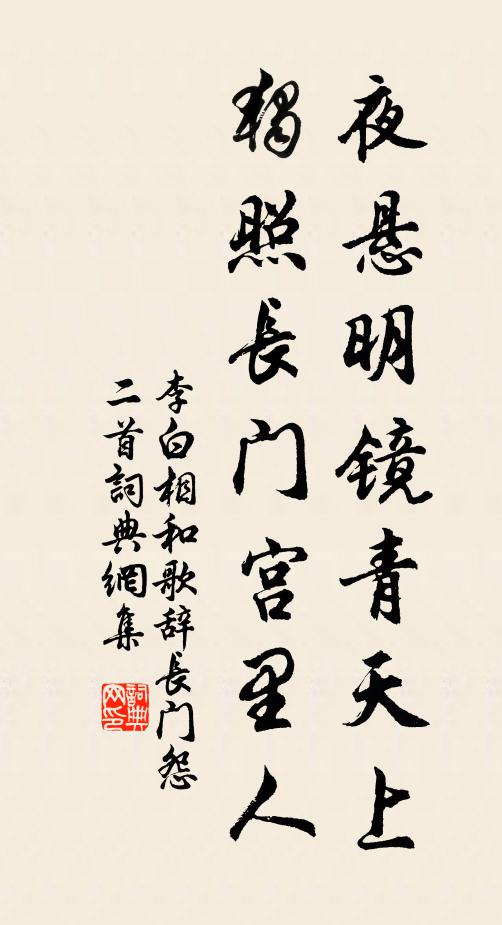 夜悬明镜青天上
独照長门宫里人
李白相和歌辞長门怨
二首詞典網集
詞典
网印